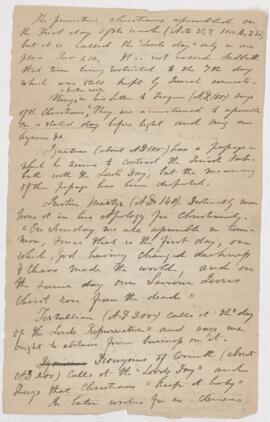 The primitive christians assembled on
the first day of the week (Acts 20,7, 1 Cor. 16,2.)
but it is called the Lords day only in one
place Rev 1,10. It is not called Sabbath
that term being restricted to the 7th day
which was still kept by Jewish converts.
Pliny in his letter to Trajan (A.D. 107) says
of the Christians, They are accustomed to assemble
on a stated day before light and sing an
hymn &c
Ignatius (about A.D. 100) has a passage in
which he seems to contrast the Jewish Sab-
bath with the Lords Day, but the meaning
of the passage has been disputed.
Justin Martyr (A.D. 140). Distinctly men
tions it in his Apology for Christianity.
"On Sunday we all assemble in com-
mon, since that is the first day, on
which, God, having changed darkness
& Chaos made the world, and on
the same day our Saviour Jesus
Christ rose from the dead"
Tertullian (A.D. 200) calls it the "day
of the Lords Resurrection" and says we
ought to abstain from business on it.
Dionysius of Corinth (about
A.D. 200) calls it the "Lords Day" and
says that Christians "keep it holy"
In later writers for ex Clemens